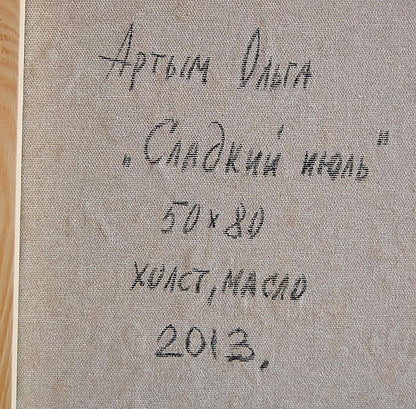 Артым Ольга
„Сладкий июль"
50×80
холст, масло
2013.